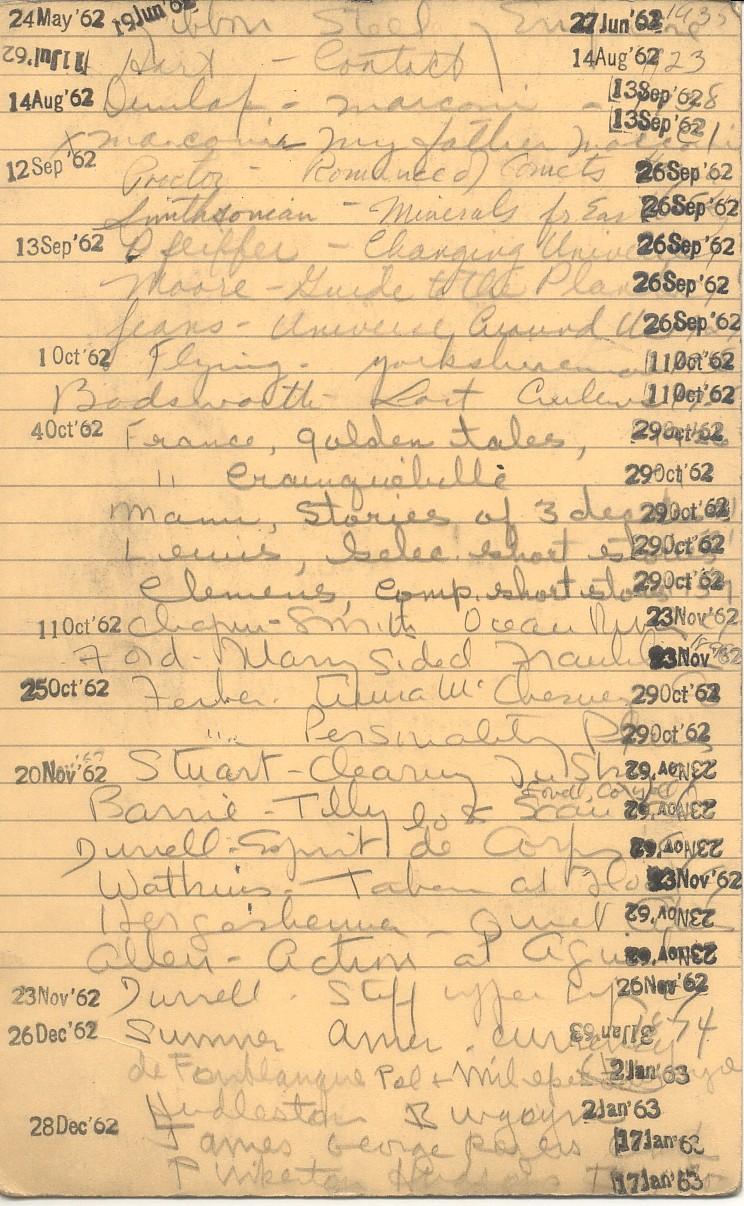 24May'62 19Jun'62 Gibbon Steel 27Jun'62 1935
11Jul'62 Hart - Contact 14Aug'62 23
14Aug'62 Dunlap - Marconi - 13Sep'62
x Marconi - My father Marconi 13Sep'62
12Sep'62 Proctor - Romance of Comets 26Sep'62
Smithsonian - Minerals fr Ea 26Sep'62
13Sep'62 Pfeiffer - Changing Universe 26Sep'62
Moore - Guide to the Plan 26Sep'62
Jeans - Universe Around U 26Sep'62
1Oct'62 Flying. Yorkshireman 11Oct'62
Bodsworth - Last Curlew 11Oct'62
4Oct'62 France, golden tales, 29Oct'62
" Crainquebille 29Oct'62
Mann, Stories of 3 dec 29Oct'62
Lewis, Selec. short sto 29Oct'62
Clemens, Comp. short stor 29Oct'62
11Oct'62 Chapin - Smith Ocean Riv 23Nov'62
Ford - Many Sided Frankli 23Nov
25Oct'62 Ferber. Emma McChesney 29Oct'62
" Personality Pl 29Oct'62
20Nov'62 Stuart - Clearing In Sk 23Nov'62
Barrie - Tilly 23Nov'62
Durrell - Esprit de Corps 23Nov'62
Watkins - Taken at Flo 23Nov'62
Hergesheimer - Quiet 23Nov'62
Allen - Action at Aqui 23Nov'62
23Nov'62 Durrell. Stiff upper Lip 26Nov'62
26Dec'62 Sumner Amer. currency 31Jan'63 1874
de Fonblanque Pol + Mil epis 2Jan'63
Hudleston Burgoyne 2Jan'63
28Dec'62 James George Rogers 17Jan'63
Pinkerton Hudson's 17Jan'63